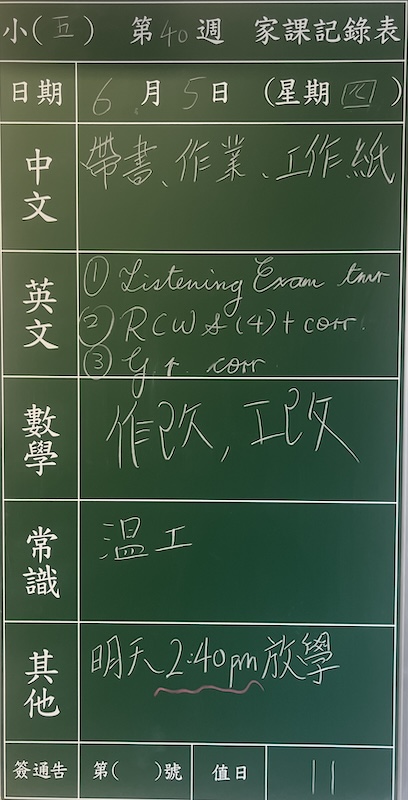 小(五) 第40週 家課記錄表
日期 6月5日 (星期四)
中文 帶書、作業、工作紙
英文 ① Listening Exam tmr
② RCWS(4)+ corr.
③ G.P. corr
數學 作改, 工改
常識 溫工
其他 明天2:40pm放學
簽通告 第( )號 值日 11